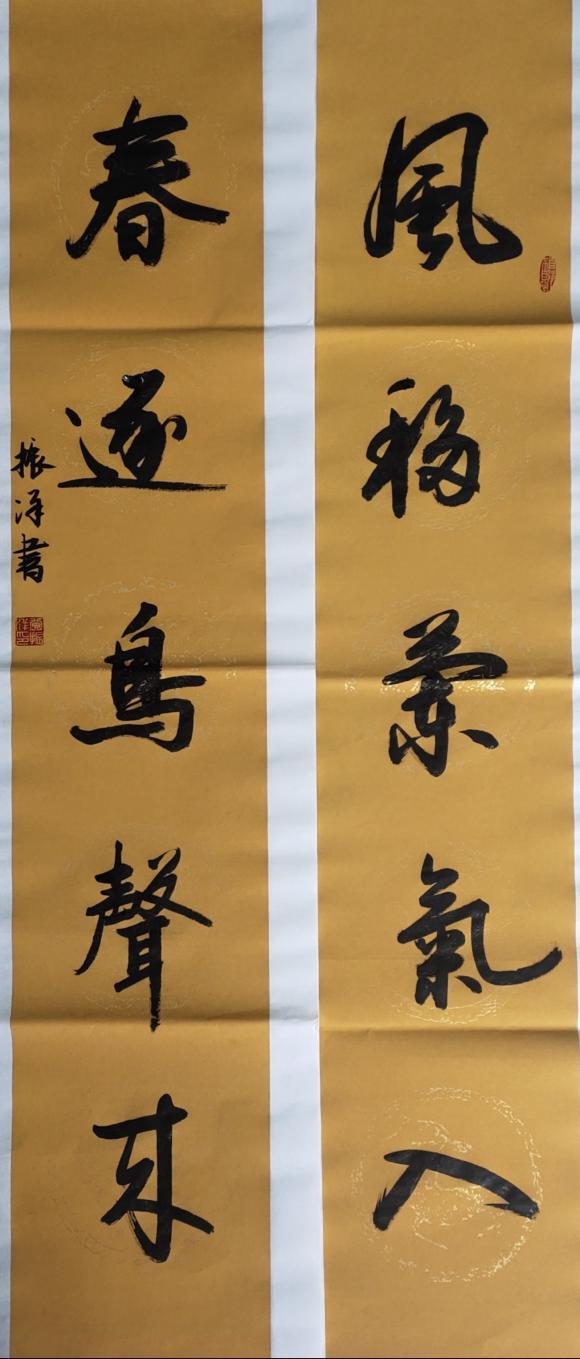 風移蘭氣入
春逐鳥聲來
振洋書